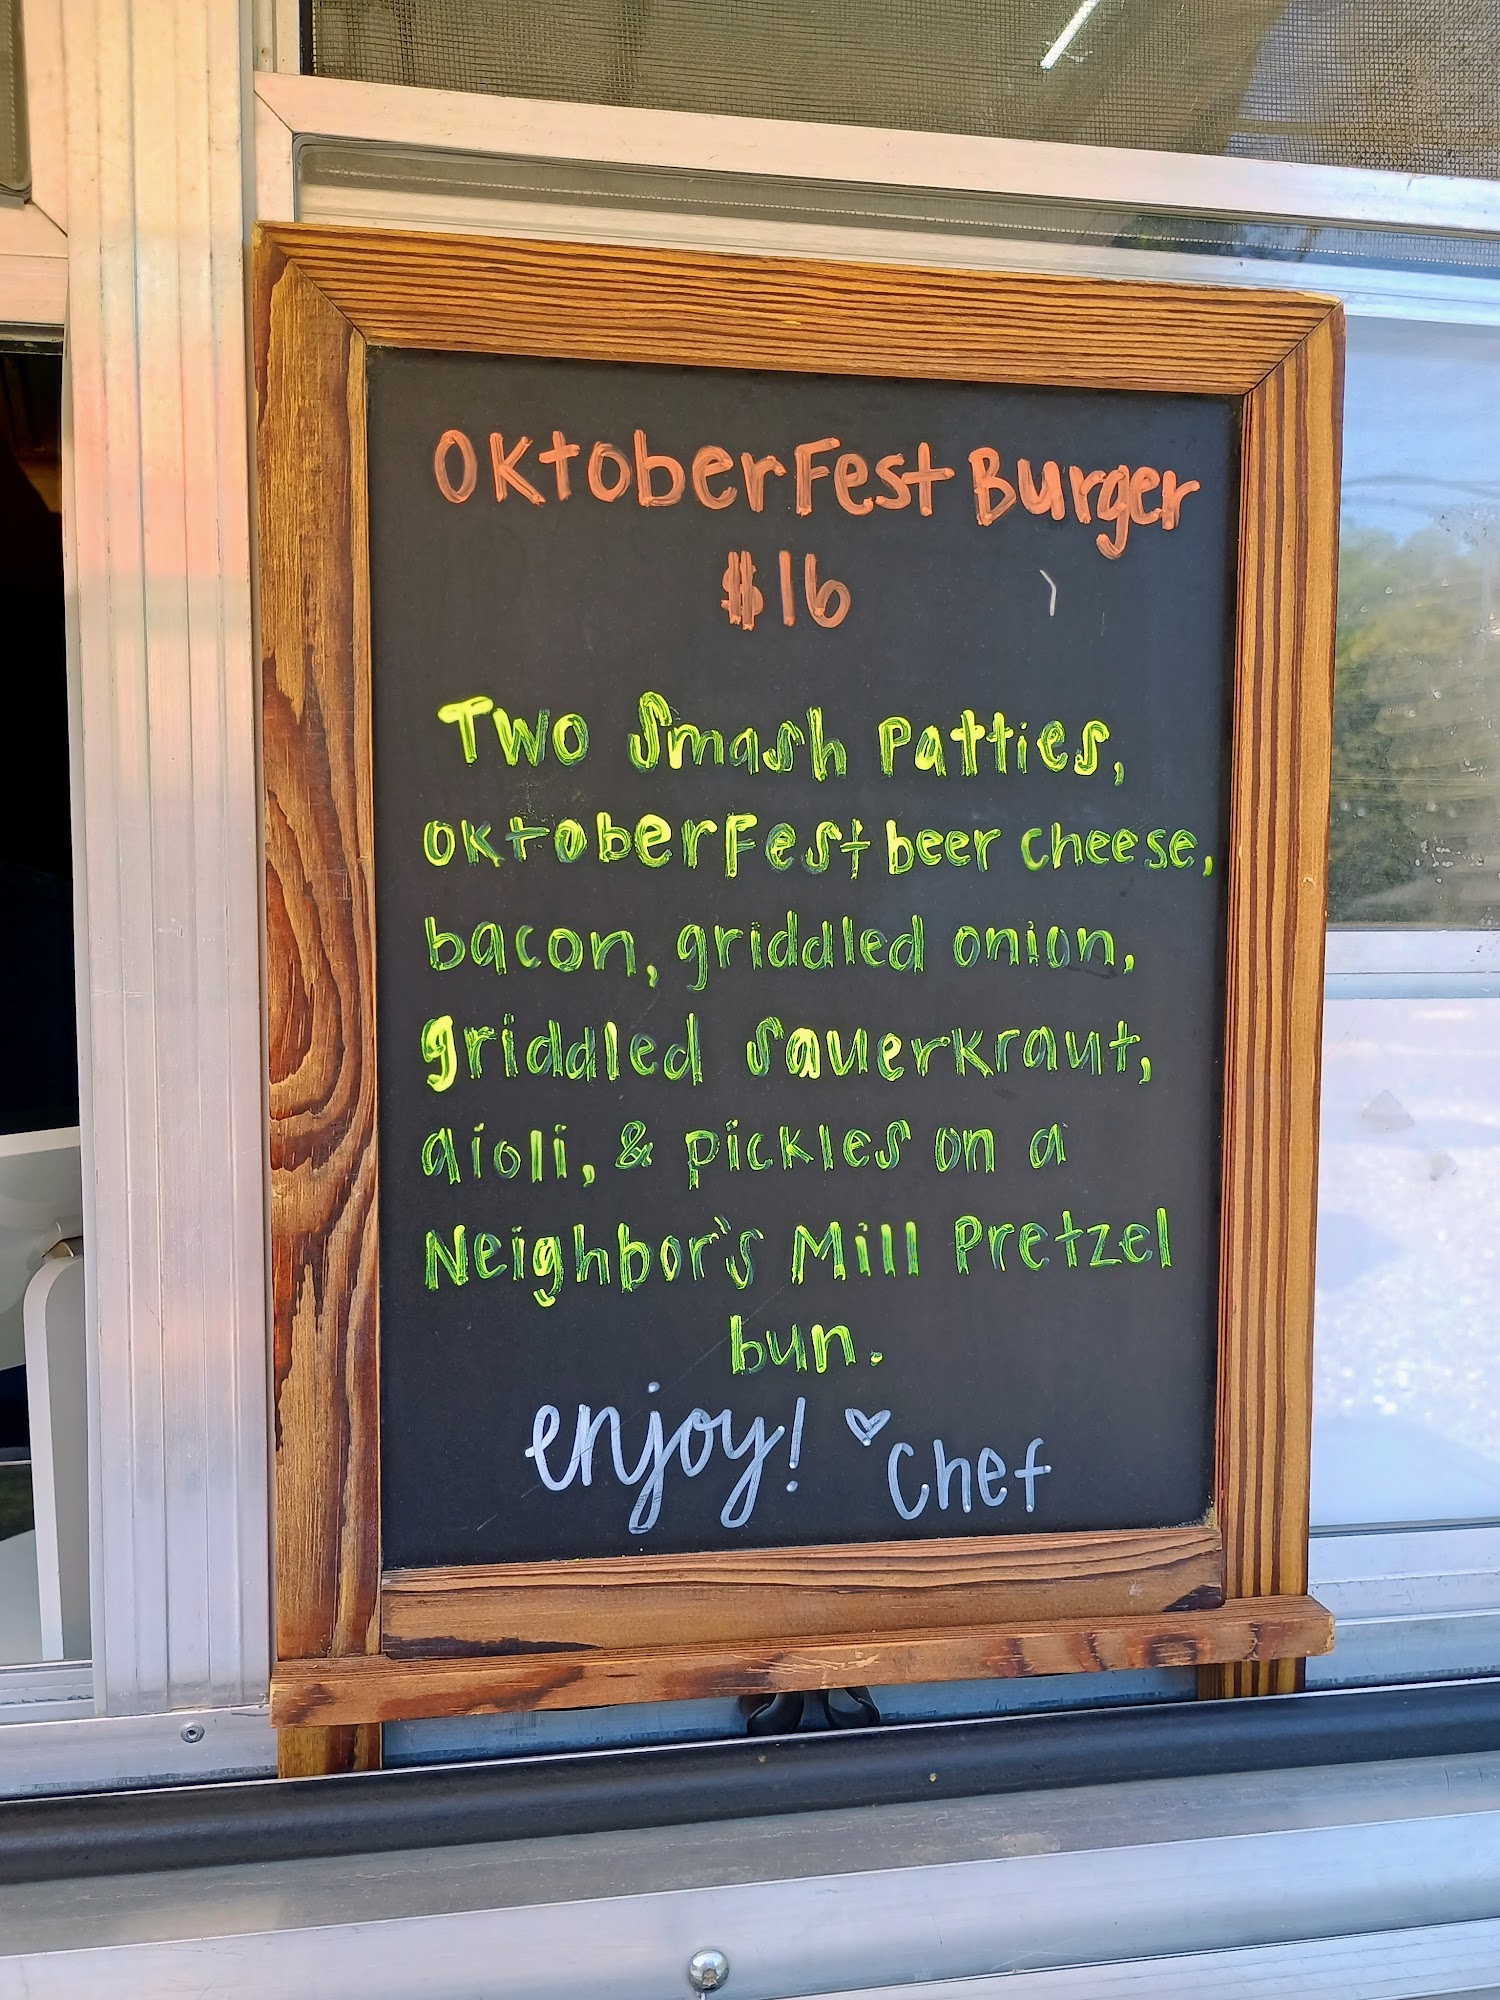 OktoberFest Burger
$16
Two Smash Patties,
OktoberFest beer cheese,
bacon, griddled onion,
griddled sauerkraut,
aioli, & pickles on a
Neighbor's Mill Pretzel
bun.
enjoy! ♡ Chef